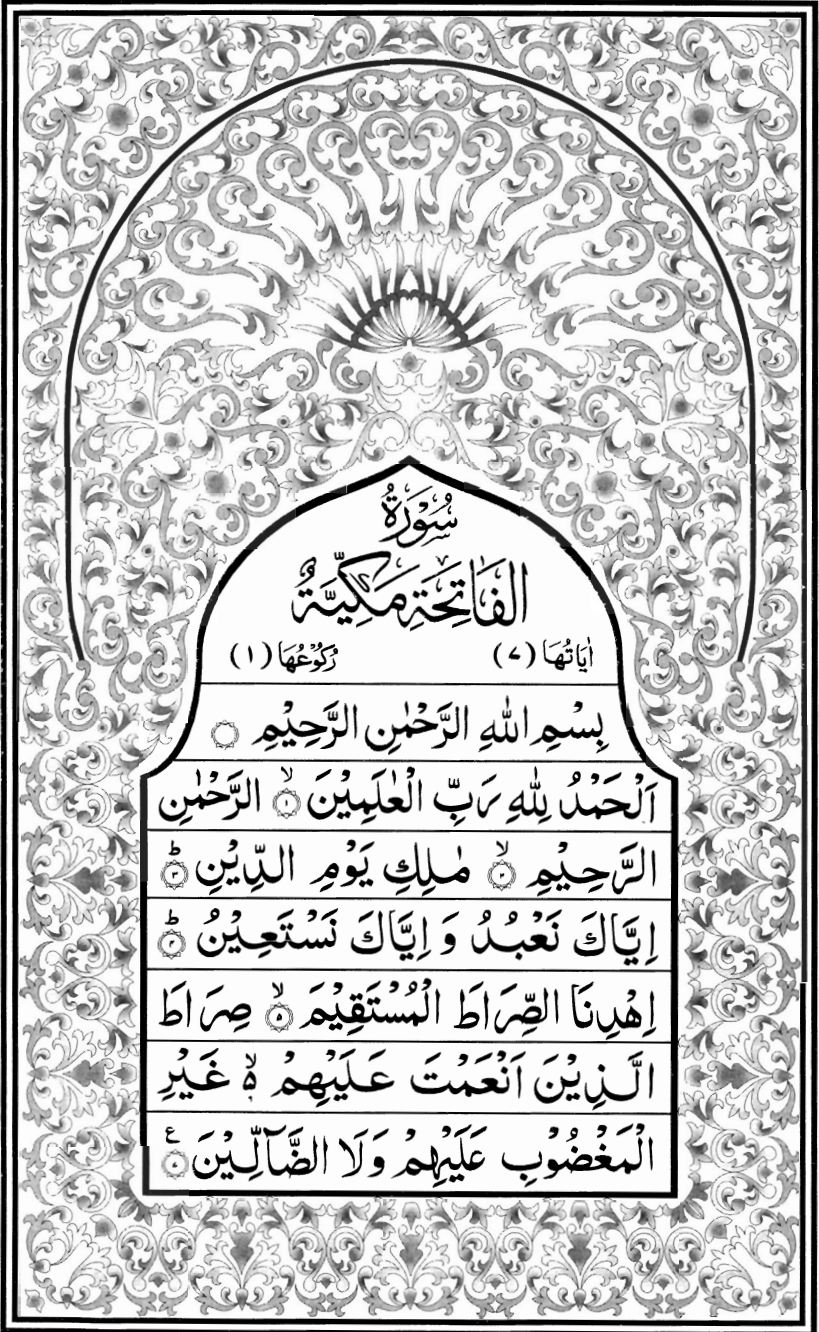 سُوْرَةُ
الْفَاتِحَةِ مَكِّيَّةٌ
اٰيَاتُهَا (٧) رُكُوْعُهَا (١)
بِسْمِ اللّٰهِ الرَّحْمٰنِ الرَّحِيْمِ
اَلْحَمْدُ لِلّٰهِ رَبِّ الْعٰلَمِيْنَ ۙ﴿١﴾ الرَّحْمٰنِ
الرَّحِيْمِ ۙ﴿٢﴾ مٰلِكِ يَوْمِ الدِّيْنِ ؕ﴿٣﴾
اِيَّاكَ نَعْبُدُ وَ اِيَّاكَ نَسْتَعِيْنُ ؕ﴿٤﴾
اِهْدِنَا الصِّرَاطَ الْمُسْتَقِيْمَ ۙ﴿٥﴾ صِرَاطَ
الَّذِيْنَ اَنْعَمْتَ عَلَيْهِمْ ۙ۬ غَيْرِ
الْمَغْضُوْبِ عَلَيْهِمْ وَلَا الضَّآلِّيْنَ ﴿٧﴾ ع